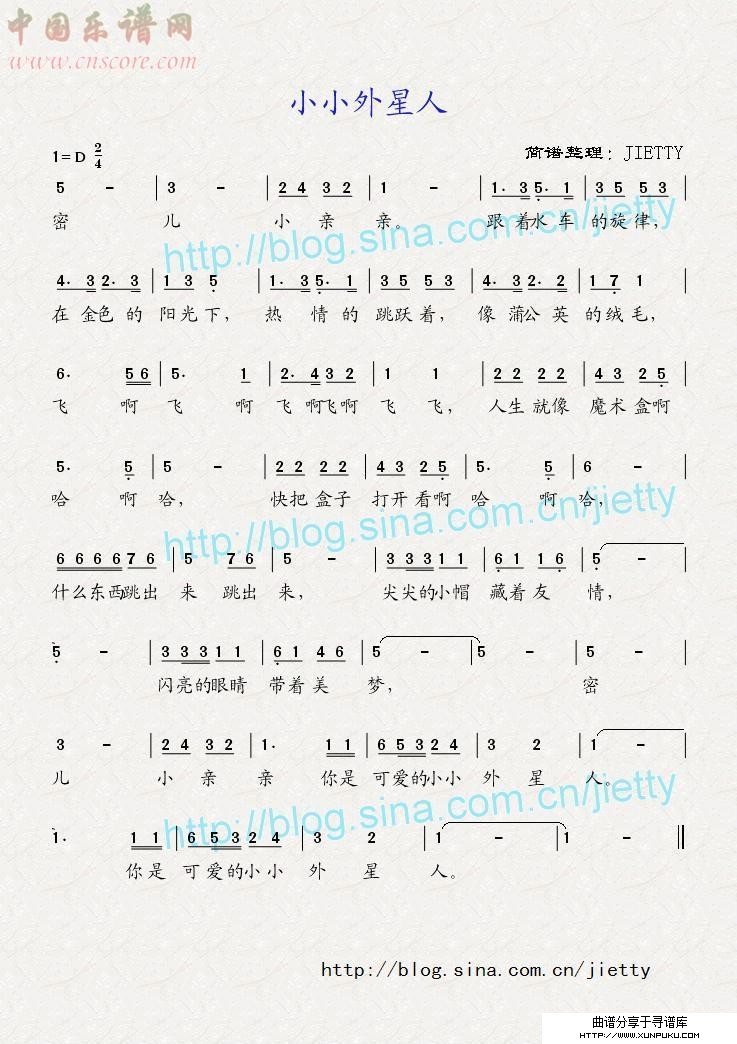 中国乐谱网
www.cnscore.com
小小外星人
1=D 2/4
简谱整理：JIETTY
5 - | 3 - | 2 4 3 2 | 1 - | 1· 3 5· 1 | 3 5 5 3 |
密 儿 小 亲 亲。 跟着水车 的旋律，
http://blog.sina.com.cn/jietty
4· 3 2· 3 | 1 3 5 | 1· 3 5· 1 | 3 5 5 3 | 4· 3 2· 2 | 1 7 1 |
在金色的 阳光下， 热情的 跳跃着， 像蒲公英的绒毛，
6· 5 6 | 5· 1 | 2· 4 3 2 | 1 1 | 2 2 2 2 | 4 3 2 5 |
飞 啊 飞 啊 飞啊飞啊 飞 飞， 人生就像 魔术盒啊
5· 5 | 5 - | 2 2 2 2 | 4 3 2 5 | 5· 5 | 6 - |
哈 啊 哈， 快把盒子 打开看啊 哈 啊 哈，
http://blog.sina.com.cn/jietty
6 6 6 6 7 6 | 5 7 6 | 5 - | 3 3 3 1 1 | 6 1 1 6 | 5 -
什么东西跳出 来 跳出 来， 尖尖的小帽 藏着友 情，
5 - | 3 3 3 1 1 | 6 1 4 6 | 5 - | 5 - | 5 - |
闪亮的眼睛 带着美 梦， 密
3 - | 2 4 3 2 | 1· 1 1 | 6 5 3 2 4 | 3 2 | 1 - |
儿 小 亲 亲 你是 可爱的小小 外 星 人。
http://blog.sina.com.cn/jietty
1· 1 1 | 6 5 3 2 4 | 3 2 | 1 - | 1 - ‖
你是 可爱的小小 外 星 人。
http://blog.sina.com.cn/jietty
曲谱分享于寻谱库
HTTP://WWW.XUNPUKU.COM